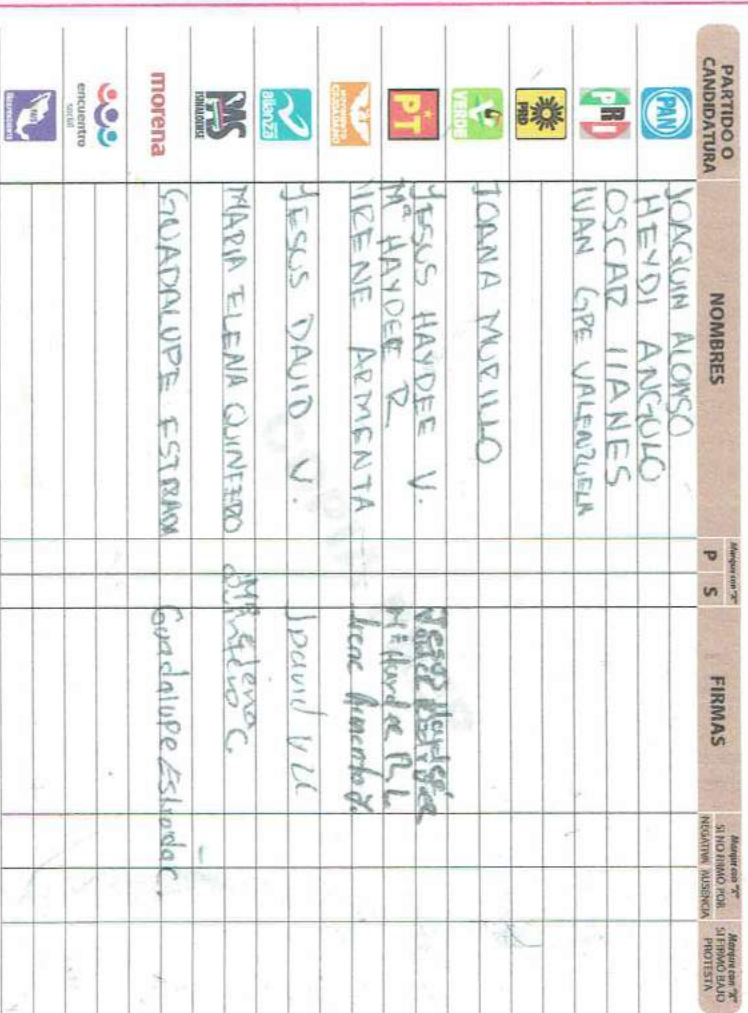 PARTIDO O CANDIDATURA
NOMBRES
Marque con "X"
P S
FIRMAS
Marque con "X" SI NO FIRMÓ POR
NEGATIVA AUSENCIA
Marque con "X" SI FIRMÓ BAJO PROTESTA
JOAQUIN ALONSO
PAN HEYDI ANGULO
OSCAR IIANES
PRI IVAN GPE VALENZUELA
PRD
VERDE JOANA MURILLO
JESUS HAYDEE V. Jesus Haydee
PT Mª HAYDEE R
MOVIMIENTO CIUDADANO IRENE ARMENTA Irene Armenta
alianza JESUS DAVID V. J David
PAS SINALOENSE MARIA ELENA QUINTERO Mª Elena Quintero C
morena GUADALUPE ESTRADA Guadalupe Estrada C.
encuentro social
PAIS